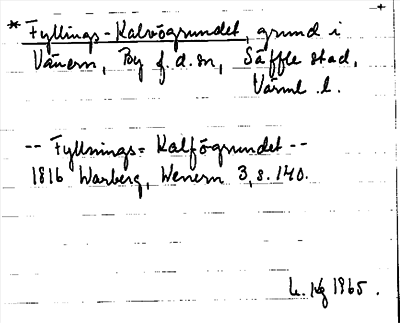 * Fyllings-Kalvögrundet, grund i
Vänern, By f.d. sn, Säffle stad,
Värml. l.
-- Fyllnings= Kalfögrundet --
1816 Warberg, Wenern 3, s. 140.
1965.